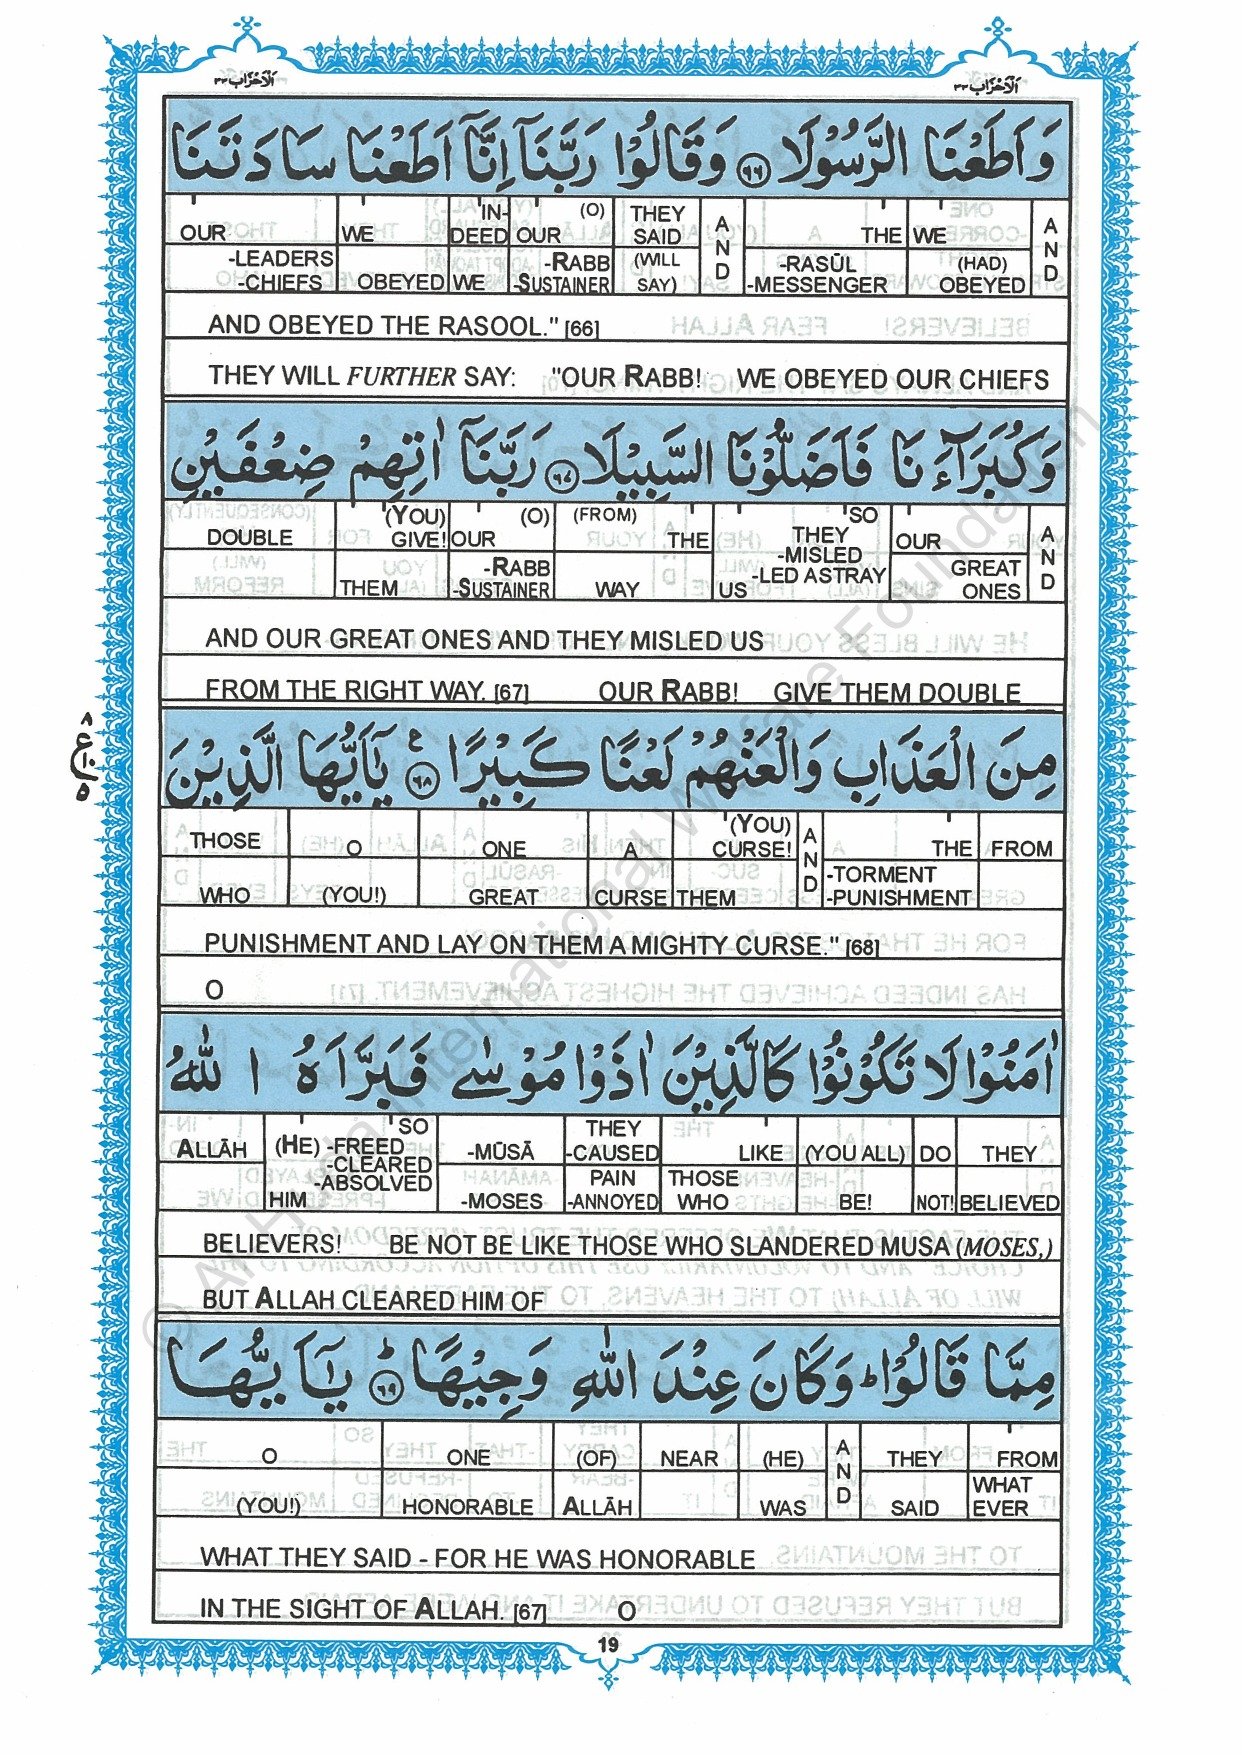 الاحزاب ٣٣ الاحزاب ٣٣
وَ اَطَعْنَا الرَّسُوْلَا ٦٦ وَ قَالُوْا رَبَّنَآ اِنَّآ اَطَعْنَا سَادَتَنَا
OUR WE 'IN- (O) THEY A THE WE A
DEED OUR SAID N N
-LEADERS -RABB (WILL D -RASŪL (HAD) D
-CHIEFS OBEYED WE -SUSTAINER SAY) -MESSENGER OBEYED
AND OBEYED THE RASOOL." [66]
THEY WILL FURTHER SAY: "OUR RABB! WE OBEYED OUR CHIEFS
وَ كُبَرَآءَ نَا فَاَضَلُّوْنَا السَّبِيْلَا ٦٧ رَبَّنَآ اٰتِهِمْ ضِعْفَيْنِ
DOUBLE (YOU) (O) (FROM) THE SO OUR A
GIVE! OUR THEY N
-RABB -MISLED GREAT D
THEM -SUSTAINER WAY US -LED ASTRAY ONES
AND OUR GREAT ONES AND THEY MISLED US
FROM THE RIGHT WAY. [67] OUR RABB! GIVE THEM DOUBLE
مِنَ الْعَذَابِ وَالْعَنْهُمْ لَعْنًا كَبِيْرًا ع ٦٨ يٰٓاَيُّهَا الَّذِيْنَ
٨
ع
١٠
٥
THOSE O ONE A (YOU) A THE FROM
CURSE! N
D -TORMENT
WHO (YOU!) GREAT CURSE THEM -PUNISHMENT
PUNISHMENT AND LAY ON THEM A MIGHTY CURSE." [68]
O
اٰمَنُوْا لَا تَكُوْنُوْا كَالَّذِيْنَ اٰذَوْا مُوْسٰى فَبَرَّاَهُ اللّٰهُ
ALLĀH (HE) SO -MŪSĀ THEY LIKE (YOU ALL) DO THEY
-FREED -CAUSED
-CLEARED PAIN THOSE
HIM -ABSOLVED -MOSES -ANNOYED WHO BE! NOT! BELIEVED
BELIEVERS! BE NOT BE LIKE THOSE WHO SLANDERED MUSA (MOSES,)
BUT ALLAH CLEARED HIM OF
مِمَّا قَالُوْا ط وَ كَانَ عِنْدَ اللّٰهِ وَجِيْهًا ط ٦٩ يٰٓاَ يُّهَا
O ONE (OF) NEAR (HE) A THEY FROM
N WHAT
(YOU!) HONORABLE ALLĀH WAS D SAID EVER
WHAT THEY SAID - FOR HE WAS HONORABLE
IN THE SIGHT OF ALLAH. [67] O
19